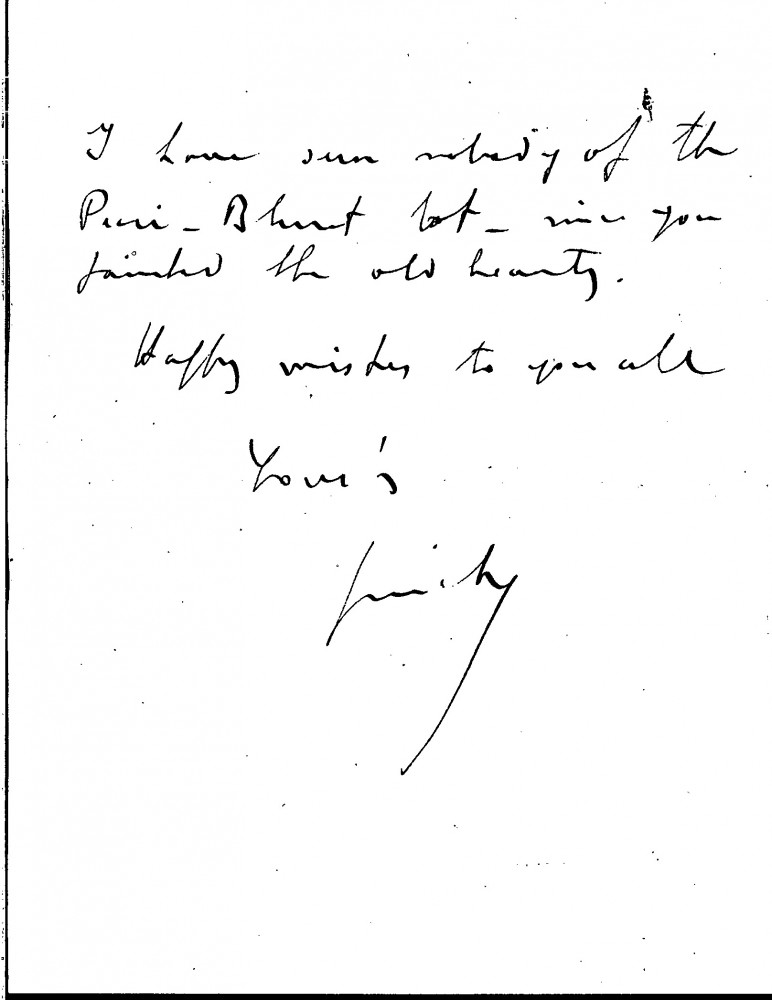 I have seen nobody of the
Puri - Blunt lot - since you
painted the old beauty.
Happy wishes to you all
Your's